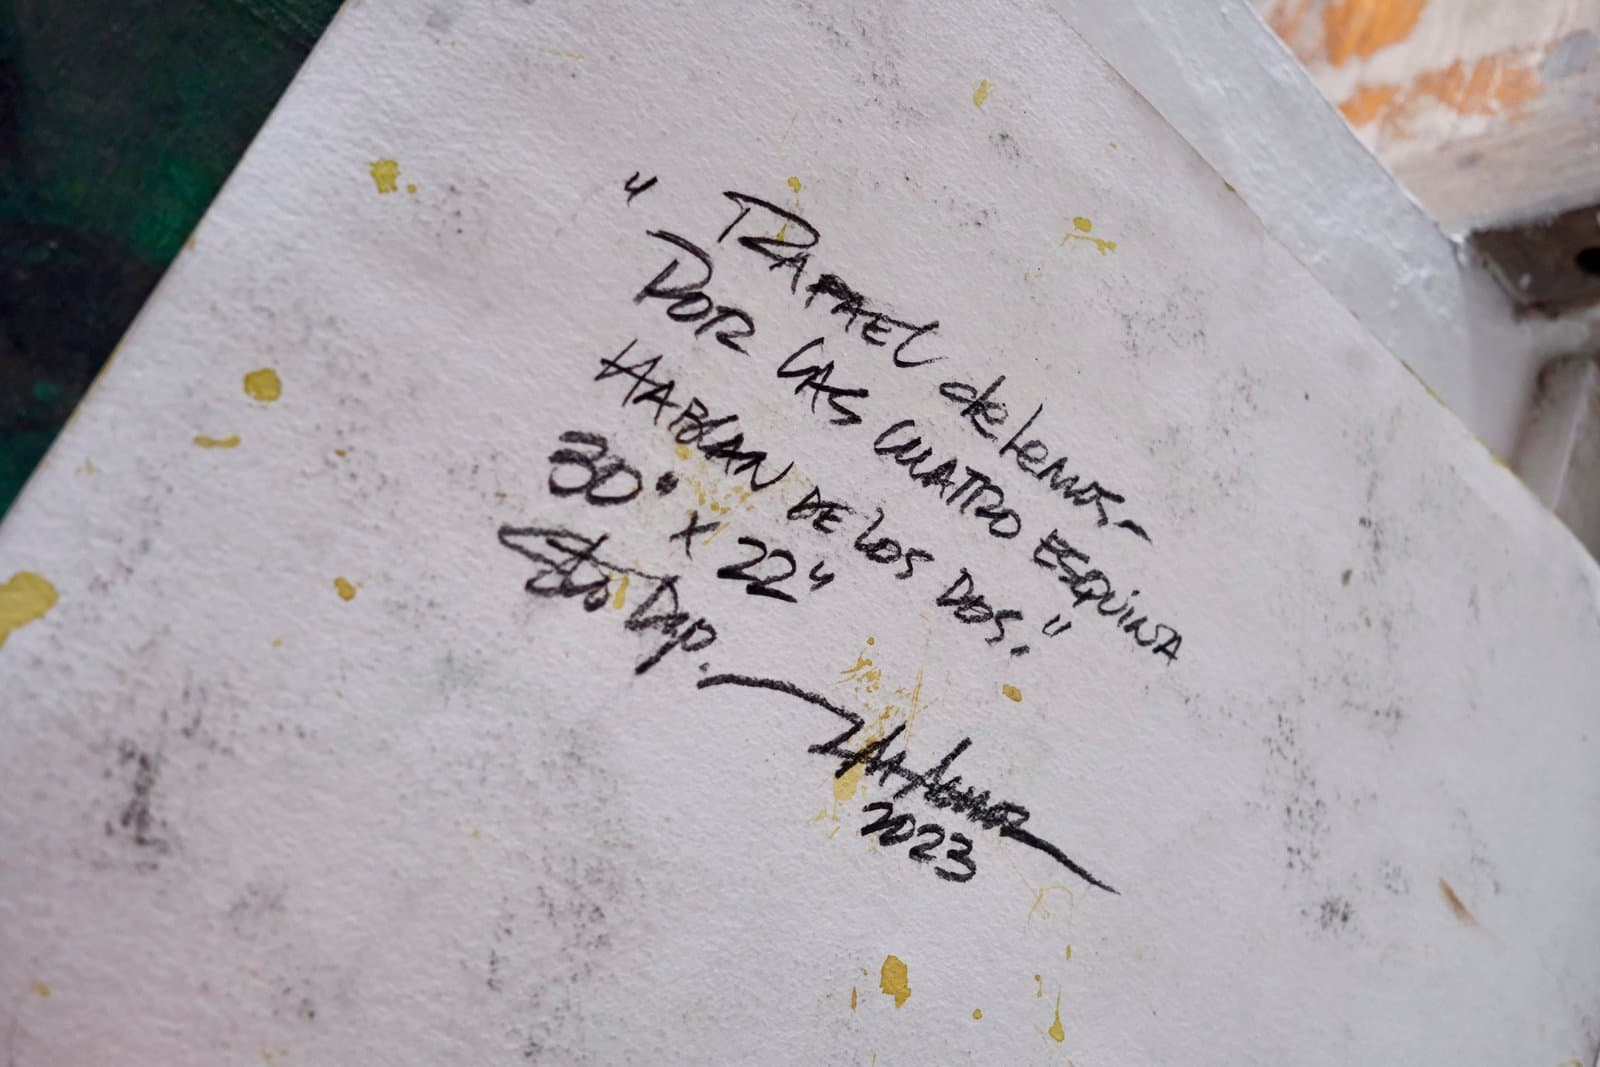 " RAFAEL delemos-
POR LAS CUATRO ESQUINA
HABLAN DE LOS DOS."
30" x 22"
Sto Dgo.
2023